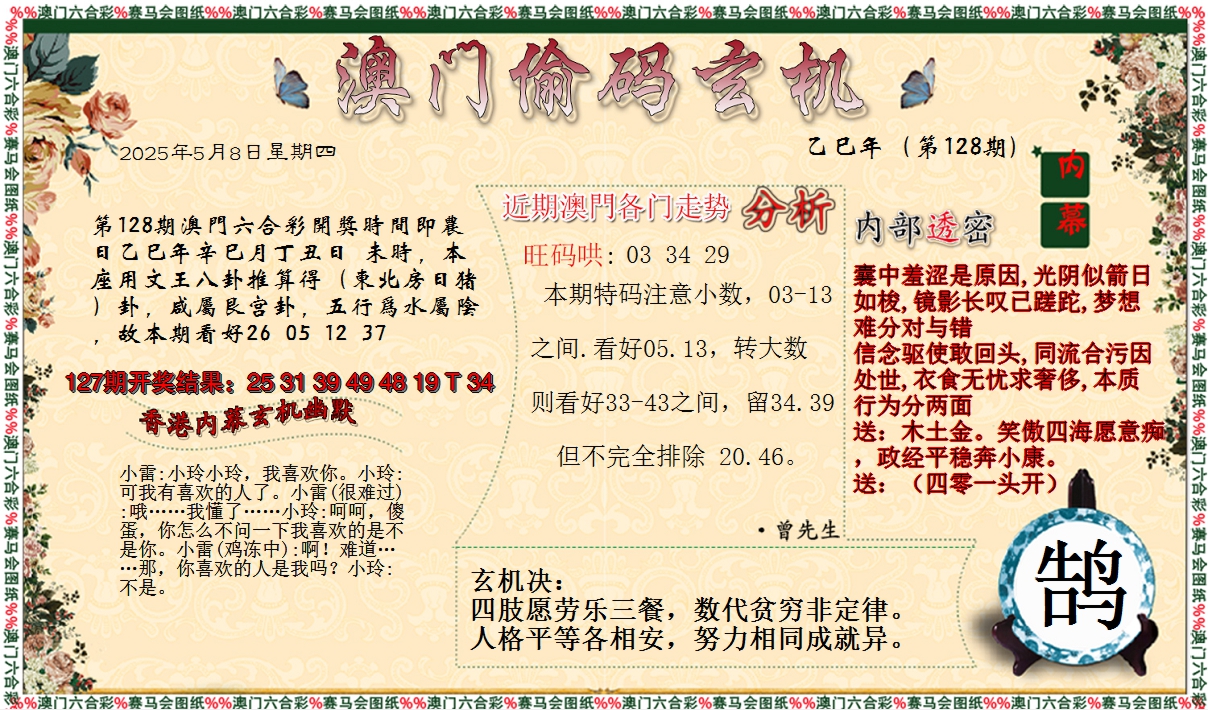 %%澳门六合彩%赛马会图纸%%澳门六合彩%赛马会图纸%%澳门六合彩%赛马会图纸%%澳门六合彩%赛马会图纸%%澳门六合彩%赛马会图纸%%澳门六合彩%赛马会图纸%%
澳门偷码玄机
2025年5月8日星期四
乙巳年（第128期）
内
幕
第128期澳門六合彩開獎時間即農
日乙巳年辛巳月丁丑日 未時，本
座用文王八卦推算得（東北房日猪
）卦，咸屬艮宫卦，五行爲水屬陰
，故本期看好26 05 12 37
127期开奖结果：25 31 39 49 48 19 T 34
香港内幕玄机幽默
小雷:小玲小玲，我喜欢你。小玲:
可我有喜欢的人了。小雷(很难过)
:哦……我懂了……小玲:呵呵，傻
蛋，你怎么不问一下我喜欢的是不
是你。小雷(鸡冻中):啊！难道…
…那，你喜欢的人是我吗？小玲:
不是。
近期澳門各门走势 分析
旺码哄: 03 34 29
本期特码注意小数，03-13
之间.看好05.13，转大数
则看好33-43之间，留34.39
但不完全排除 20.46。
·曾先生
内部透密
囊中羞涩是原因,光阴似箭日
如梭,镜影长叹己蹉跎,梦想
难分对与错
信念驱使敢回头,同流合污因
处世,衣食无忧求奢侈,本质
行为分两面
送：木土金。笑傲四海愿意痴
，政经平稳奔小康。
送：（四零一头开）
玄机决：
四肢愿劳乐三餐，数代贫穷非定律。
人格平等各相安，努力相同成就异。
鹄
%%澳门六合彩%赛马会图纸%%澳门六合彩%赛马会图纸%%澳门六合彩%赛马会图纸%%澳门六合彩
%%澳门六合彩%赛马会图纸%%澳门六合彩%赛马会图纸%%澳门六合彩%赛马会图纸%%澳门六合彩
%%澳门六合彩%赛马会图纸%%澳门六合彩%赛马会图纸%%澳门六合彩%赛马会图纸%%澳门六合彩%赛马会图纸%%澳门六合彩%赛马会图纸%%澳门六合彩%赛马会图纸%%